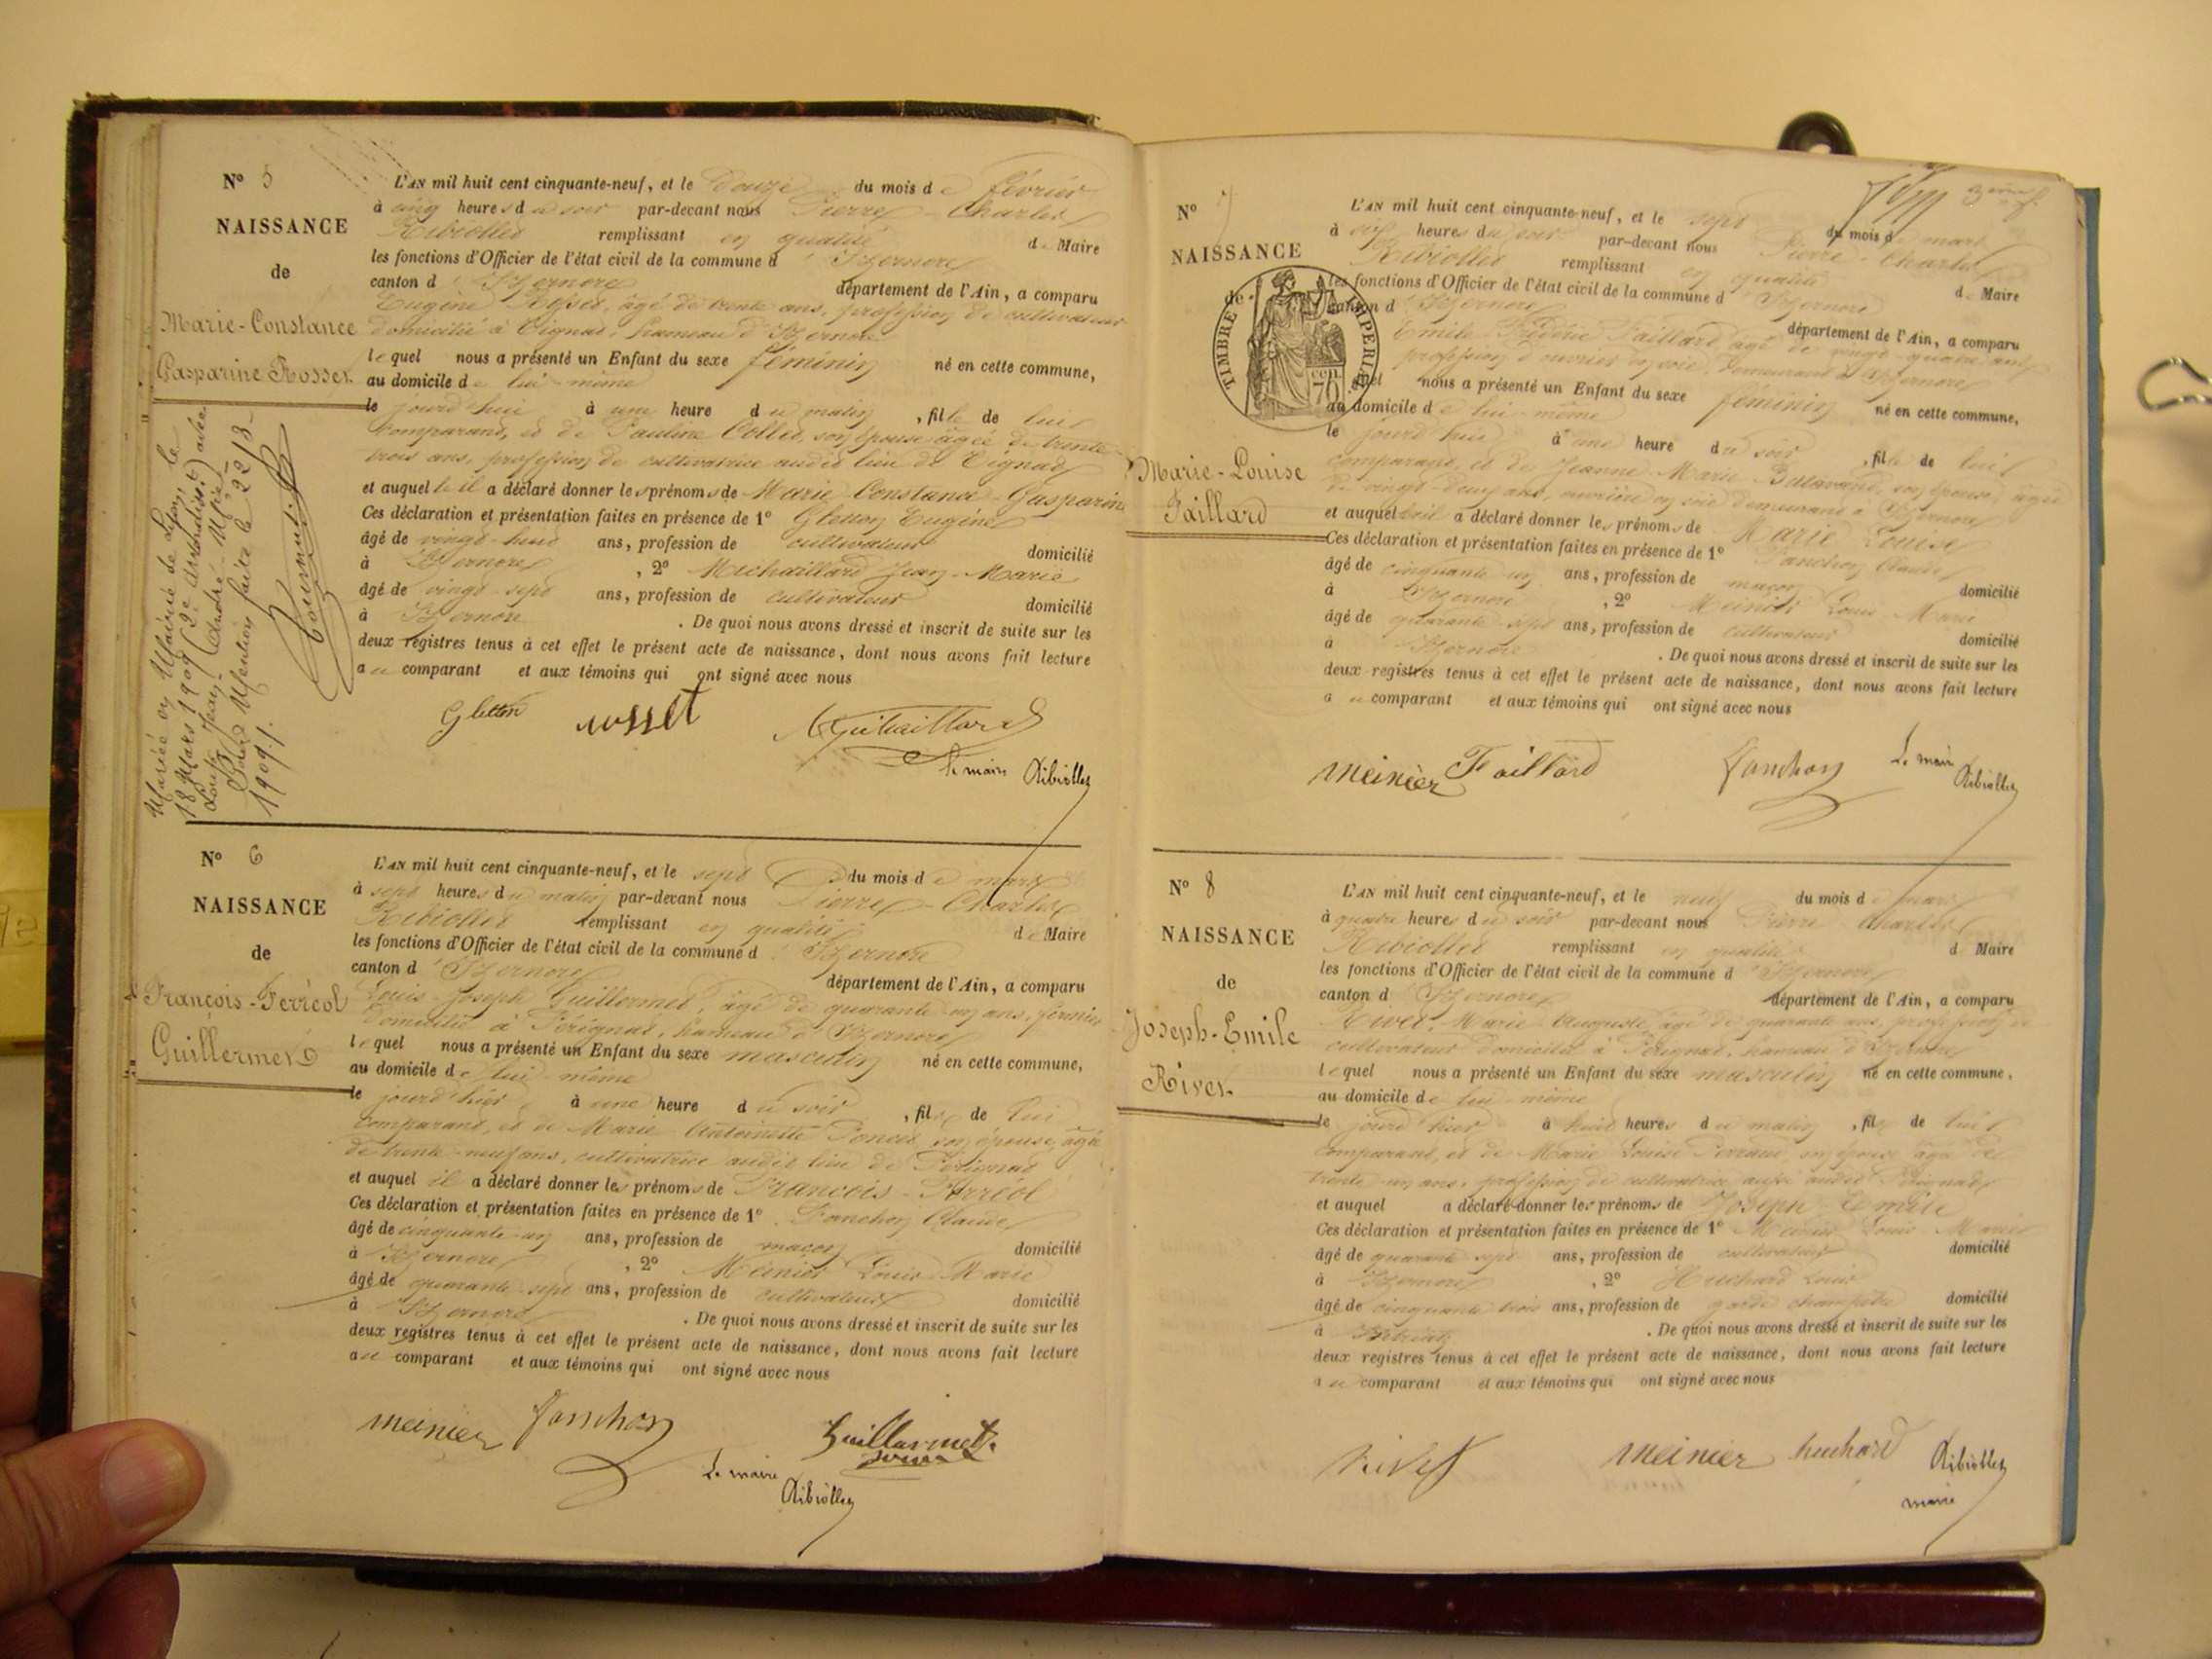 N° 5
NAISSANCE
de
Marie-Constance
Gasparine Rosset
Mariée en Mairie de Lyon, le
18 Mars 1909 (2e arrondiss.t) avec
Mention faite le 22/3-
1909.
L'AN mil huit cent cinquante-neuf, et le douze du mois de février
à cinq heures du soir par-devant nous Pierre-Charles
Ribiollet remplissant en qualité de Maire
les fonctions d'Officier de l'état civil de la commune d'Izernore
canton d'Izernore département de l'Ain, a comparu
Eugène Rosset, âgé de trente ans, profession de cultivateur
domicilié à Tignat, hameau d'Izernore
lequel nous a présenté un Enfant du sexe féminin né en cette commune,
au domicile de lui-même
le jourd'hui à une heure du matin, fille de lui
comparant, et de Pauline Collet, son épouse âgée de trente
trois ans, profession de cultivatrice audit lieu de Tignat
et auquel il a déclaré donner les prénoms de Marie-Constance-Gasparine
Ces déclaration et présentation faites en présence de 1° Gletton Eugène
âgé de vingt-huit ans, profession de cultivateur domicilié
à Izernore, 2° Michaillard Jean-Marie
âgé de vingt-sept ans, profession de cultivateur domicilié
à Izernore. De quoi nous avons dressé et inscrit de suite sur les
deux registres tenus à cet effet le présent acte de naissance, dont nous avons fait lecture
au comparant et aux témoins qui ont signé avec nous
Gletton rosset Michaillard
Le maire Ribiollet
N° 6
NAISSANCE
de
François-Ferréol
Guillermet
L'AN mil huit cent cinquante-neuf, et le sept du mois de mars
à sept heures du matin par-devant nous Pierre-Charles
Ribiollet remplissant en qualité de Maire
les fonctions d'Officier de l'état civil de la commune d'Izernore
canton d'Izernore département de l'Ain, a comparu
Louis-Joseph Guillermet, âgé de quarante-un ans, fermier
domicilié à Pérignat, hameau d'Izernore
lequel nous a présenté un Enfant du sexe masculin né en cette commune,
au domicile de lui-même
le jourd'hier à une heure du soir, fils de lui
comparant, et de Marie Antoinette Poncet, son épouse, âgée
de trente-neuf ans, cultivatrice audit lieu de Pérignat
et auquel il a déclaré donner les prénoms de François-Ferréol
Ces déclaration et présentation faites en présence de 1° Fanchon Claude
âgé de cinquante-un ans, profession de maçon domicilié
à Izernore, 2° Meinier Louis-Marie
âgé de quarante-sept ans, profession de cultivateur domicilié
à Izernore. De quoi nous avons dressé et inscrit de suite sur les
deux registres tenus à cet effet le présent acte de naissance, dont nous avons fait lecture
au comparant et aux témoins qui ont signé avec nous
meinier fanchon Guillermet
Le maire
Ribiollet
N° 7
NAISSANCE
de
TIMBRE IMPERIAL
70 cen.
Marie-Louise
Faillard
L'AN mil huit cent cinquante-neuf, et le sept du mois de mars
à six heures du soir par-devant nous Pierre-Charles
Ribiollet remplissant en qualité de Maire
les fonctions d'Officier de l'état civil de la commune d'Izernore
canton d'Izernore département de l'Ain, a comparu
Emile Frédéric Faillard âgé de vingt-quatre ans
profession d'ouvrier en soie, demeurant à Izernore
lequel nous a présenté un Enfant du sexe féminin né en cette commune,
au domicile de lui-même
le jourd'hui à une heure du soir, fille de lui
comparant, et de Jeanne-Marie son épouse, âgée
de vingt-deux ans, ouvrière en soie demeurant à Izernore
et auquel il a déclaré donner les prénoms de Marie Louise
Ces déclaration et présentation faites en présence de 1° Fanchon Claude
âgé de cinquante-un ans, profession de maçon domicilié
à Izernore, 2° Meinier Louis-Marie
âgé de quarante-sept ans, profession de cultivateur domicilié
à Izernore. De quoi nous avons dressé et inscrit de suite sur les
deux registres tenus à cet effet le présent acte de naissance, dont nous avons fait lecture
au comparant et aux témoins qui ont signé avec nous
meinier Faillard fanchon Le maire
Ribiollet
N° 8
NAISSANCE
de
Joseph-Emile
Rivet
L'AN mil huit cent cinquante-neuf, et le neuf du mois de mars
à quatre heures du soir par-devant nous Pierre-Charles
Ribiollet remplissant en qualité de Maire
les fonctions d'Officier de l'état civil de la commune d'Izernore
canton d'Izernore département de l'Ain, a comparu
Rivet, Marie-Auguste, âgé de quarante ans, profession de
cultivateur domicilié à Pérignat, hameau d'Izernore
lequel nous a présenté un Enfant du sexe masculin né en cette commune,
au domicile de lui-même
le jourd'hier à huit heures du matin, fils de lui
comparant, et de Marie Louise Perrand son épouse âgée de
trente-un ans, profession de cultivatrice aussi audit Pérignat
et auquel a déclaré donner les prénoms de Joseph-Emile
Ces déclaration et présentation faites en présence de 1° Meinier Louis Marie
âgé de quarante-sept ans, profession de cultivateur domicilié
à Izernore, 2° Huchard Louis
âgé de cinquante-trois ans, profession de garde champêtre domicilié
à. De quoi nous avons dressé et inscrit de suite sur les
deux registres tenus à cet effet le présent acte de naissance, dont nous avons fait lecture
au comparant et aux témoins qui ont signé avec nous
rivet meinier huchard Ribiollet
maire